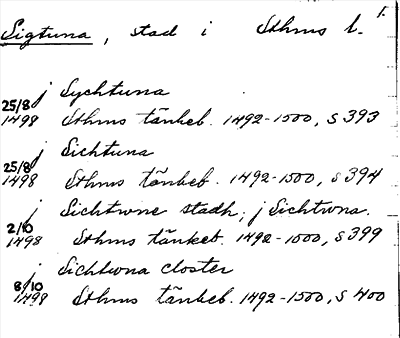 1.
Sigtuna, stad i Sthms l.
j Sychtuna
25/8 1498 Sthms tänkeb. 1492-1500, s 393
j Sichtuna
25/8 1498 Sthms tänkeb. 1492-1500, s 394
j Sichtwne stadh; j Sichtwna.
2/10 1498 Sthms tänkeb. 1492-1500, s 399
j Sichtwna closter
8/10 1498 Sthms tänkeb. 1492-1500, s 400